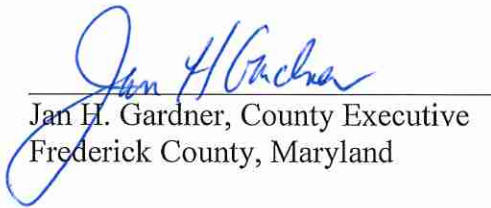 Jan H Gardner
Jan H. Gardner, County Executive
Frederick County, Maryland